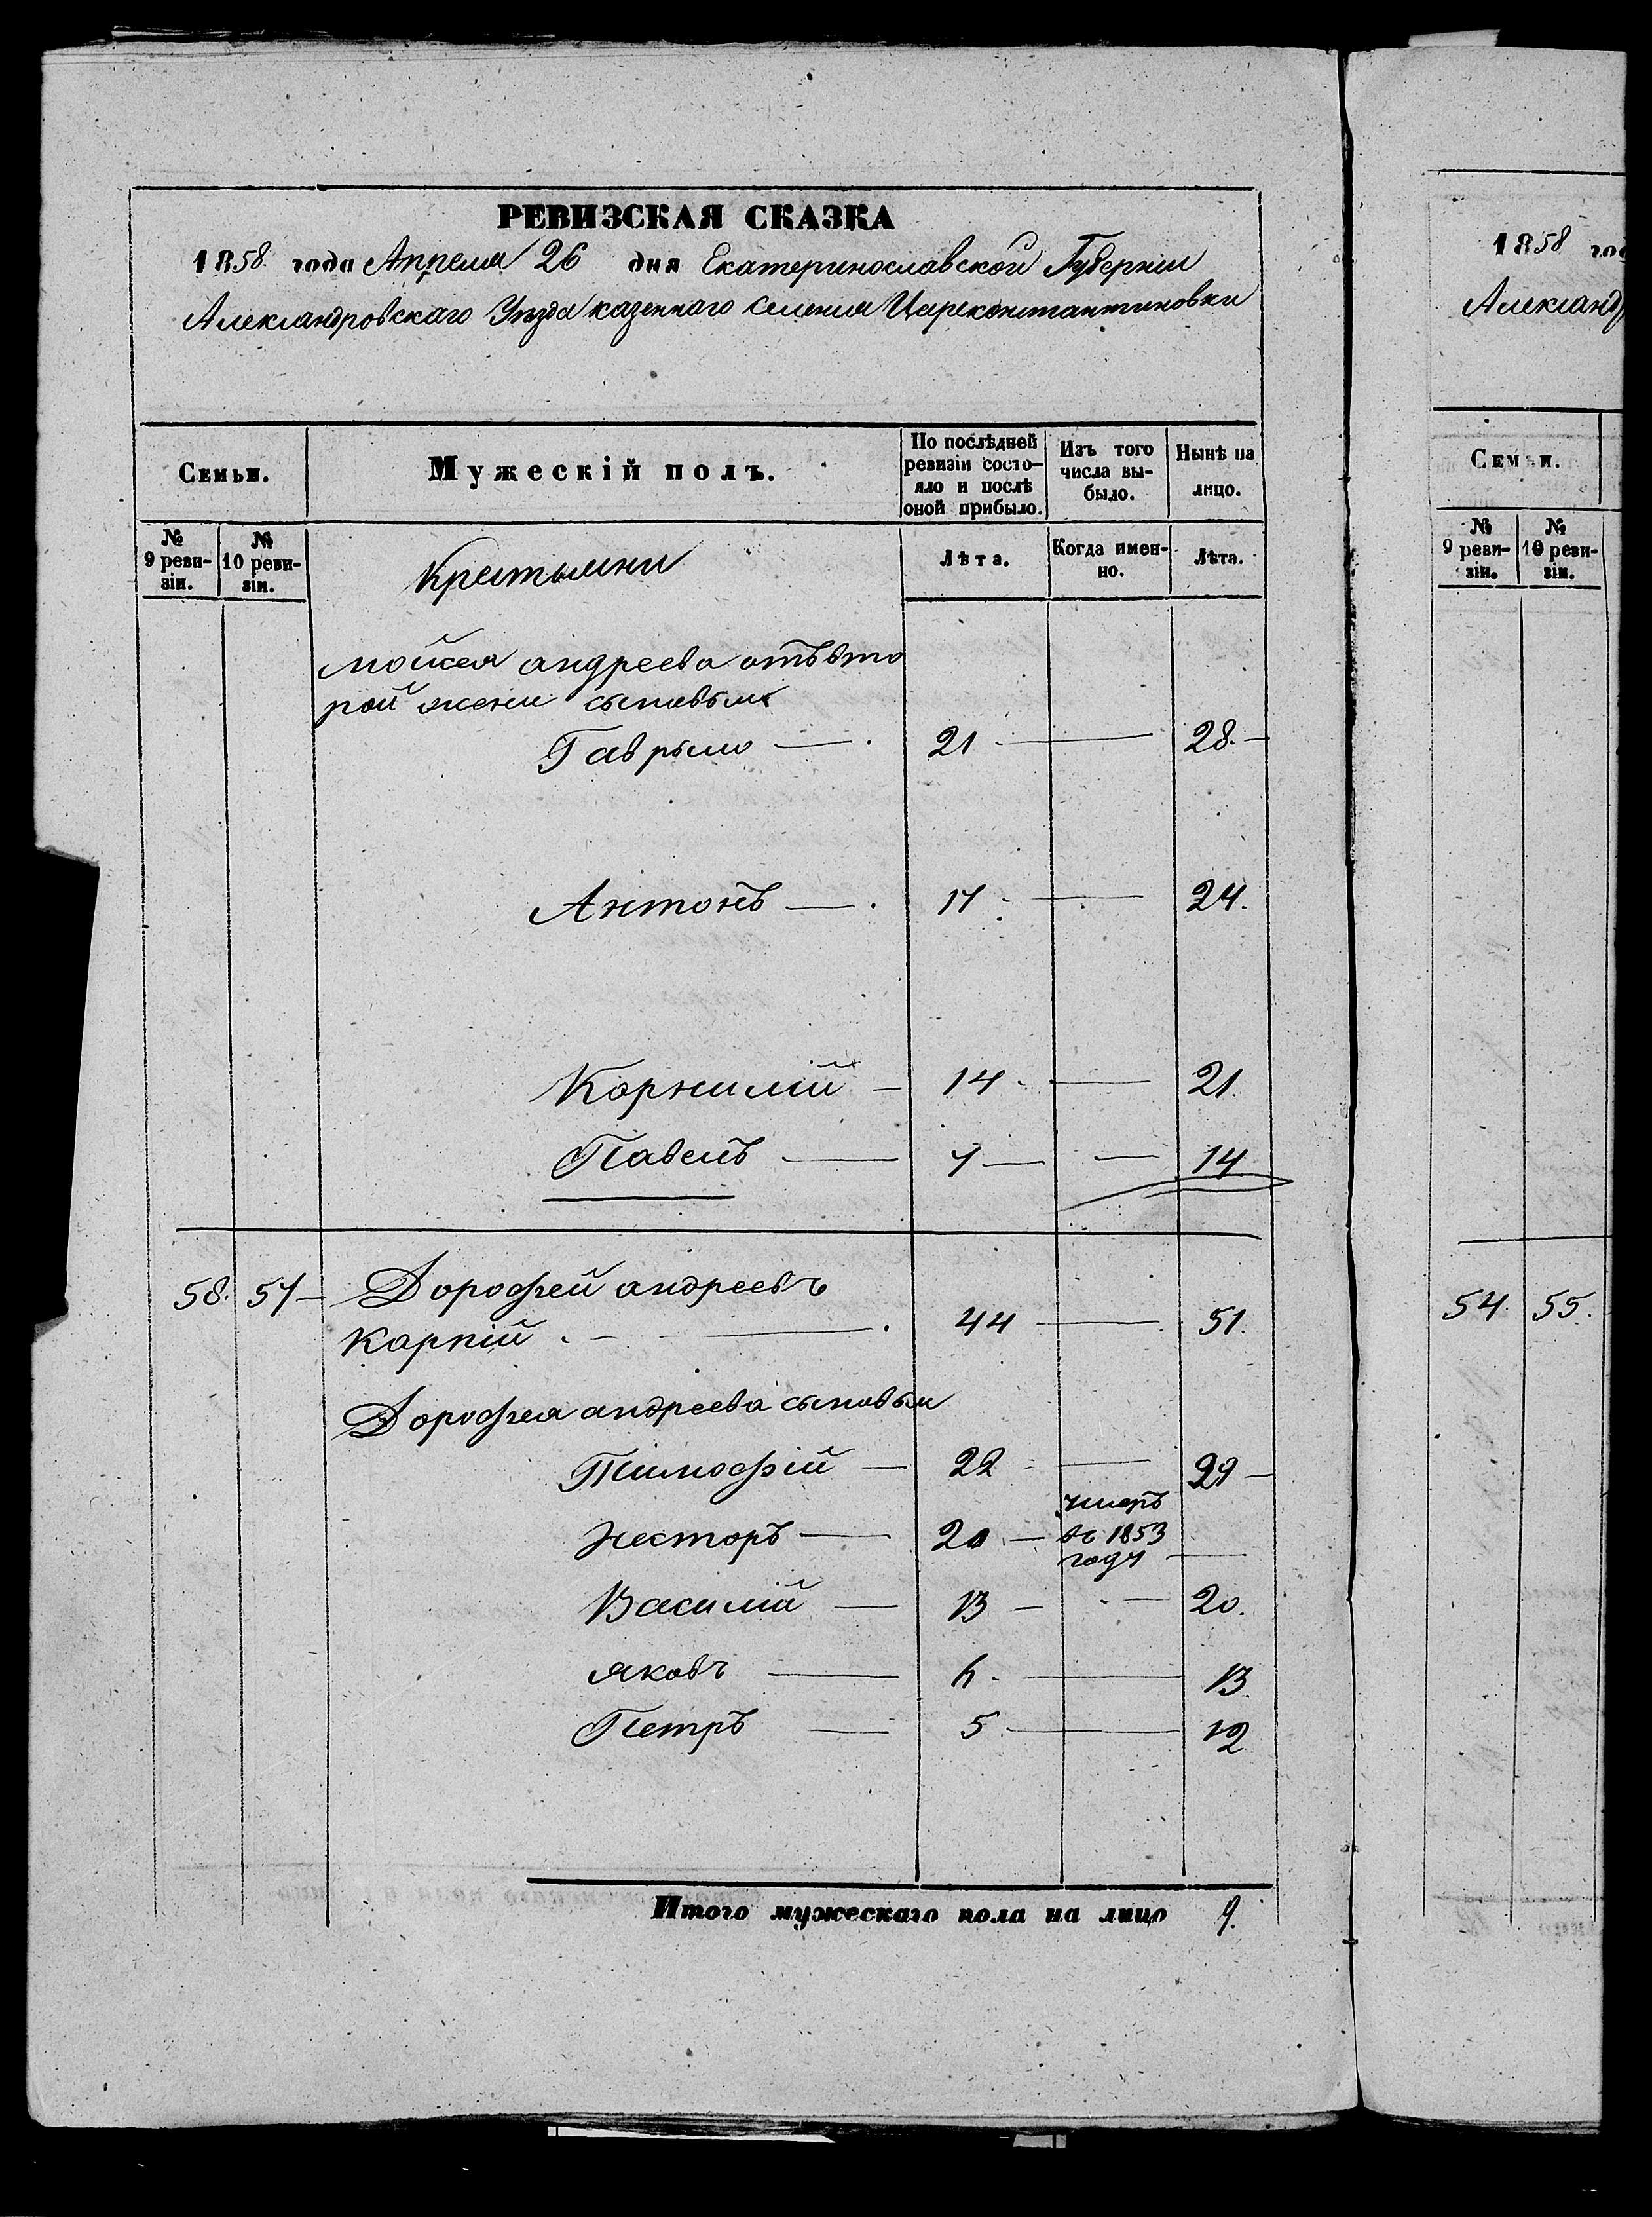 РЕВИЗСКАЯ СКАЗКА
1858 года Апреля 26 дня Екатеринославской Губерніи
Александровскаго Уѣзда казеннаго селенія Цареконстантиновки
Семьи.
Мужескій полъ.
По послѣдней ревизіи состо-
яло и послѣ оной прибыло.
Изъ того числа вы-
было.
Нынѣ на лицо.
№ 9 реви-
зіи.
№ 10 реви-
зіи.
Крестьяни
Лѣта.
Когда имен-
но.
Лѣта.
Мойсея андреева отъ вто
рой жени сыновья
Гаврыло — 21 — 28.
Антонъ — 17 — 24.
Корнилій — 14 — 21.
Павелъ — 7 — 14
58. 57 — Дорофей андреевъ
Карпій — 44 — 51.
Дорофея андреева сыновья
Тимофій — 22 — 29 —
Несторъ — 20 — умеръ
въ 1853
году —
Василій — 13 — 20.
Яковъ — 6 — 13
Петръ — 5 — 12
Итого мужескаго пола на лицо 9.
1858 год
Александ
Семьи.
№ 9 реви-
зіи.
№ 10 реви-
зіи.
54. 55.